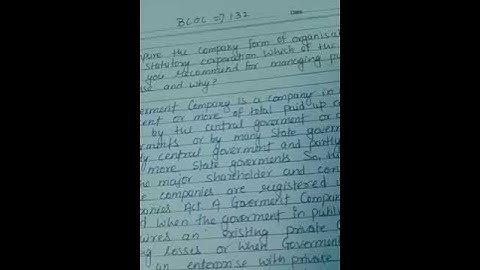 BCOC => 132
pare the company form of organisa
statutory corporation which of the
you recommend for managing pu
se and why?
erment Company is a company in
ent or more of total paid up c
by the central goverment or
ernments or by many State gover
ly central goverment and partly
more state goverments So, th
he major shareholder and con
e companies are registered u
panies Act. A Goverment Compan
d when the goverment in publi
uires an existing private
ng losses or when Governmen
an enterprise with private